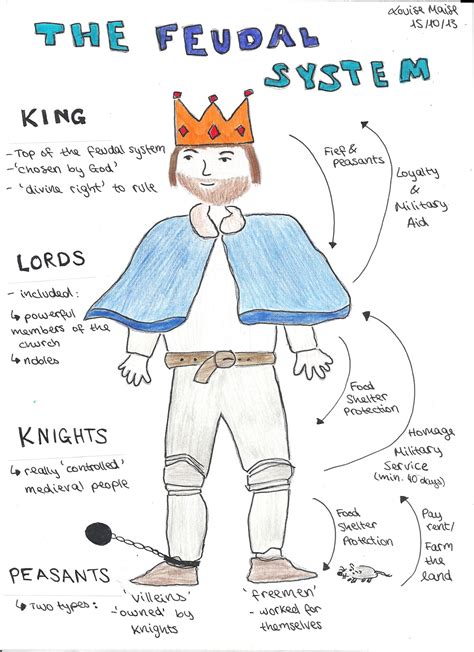 Louise Maise
15/10/13
THE FEUDAL
SYSTEM
KING
- Top of the feudal system
- 'chosen by God'
- 'divine right' to rule
Fief &
peasants
Loyalty
&
Military
Aid
LORDS
- included:
↳ powerful
members of the
church
↳ nobles
Food
Shelter
Protection
Homage
Military
Service
(min. 40 days)
KNIGHTS
↳ really 'controlled'
medieval people
Food
Shelter
Protection
Pay
rent/
Farm
the
land
PEASANTS
↳ Two types:
'villeins'
- 'owned' by
knights
'freemen'
- worked for
themselves